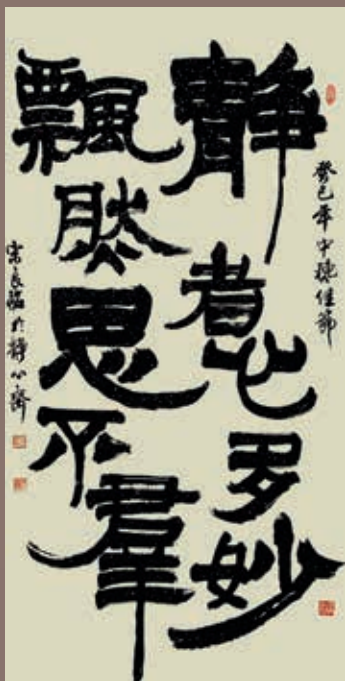 癸巳年中穐佳節
靜者心多妙
飄然思不羣
於靜心齋